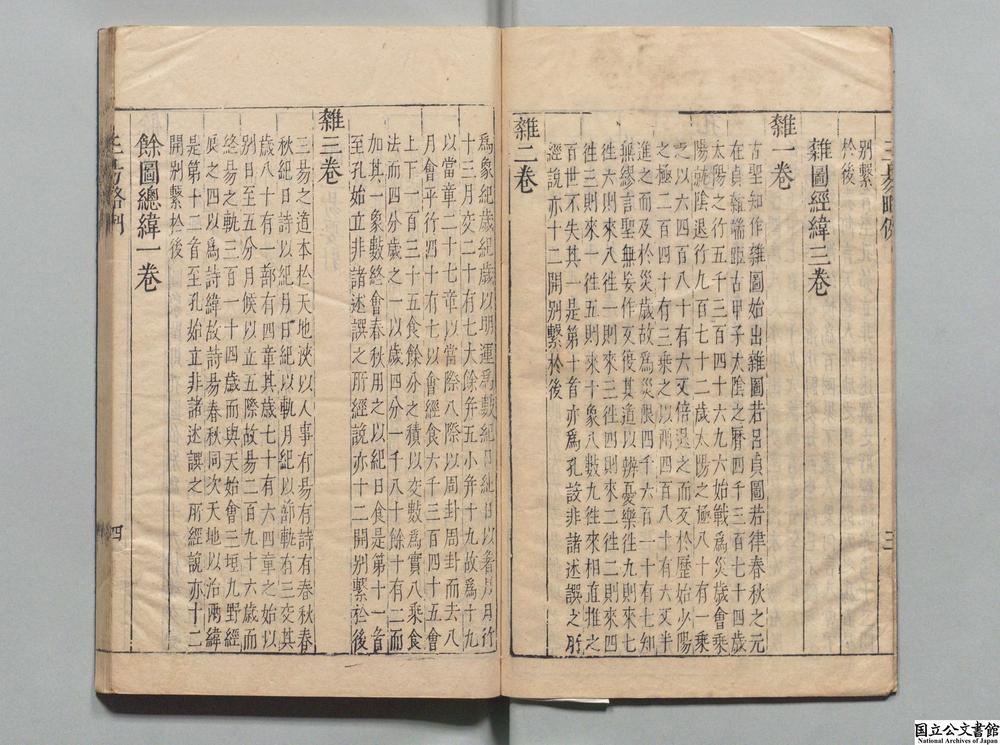 三易畧例
三
別繫
於後
雜圖經緯三卷
雜一卷
古聖知作雜圖始出雜圖若呂貞圖若律春秋之元
在貞雜端距古甲子太陰之曆四千三百七十四歲
太陽之行五千三百四十六九六始戰為災歲會乘
陽就陰退行九百七十二歲太陽之極八十有一乘
之以六四百八十有六又倍退之而爻於歷始少陽
之極二百四十有三乘之以兩四百八十有六爻半
進之而及於災歲故為災限四千六百一十有七知
無繆言聖無妄作爻復其道以辨憂樂往九則來七
往六則來八往一則來三往四則來二往二則來四
往三則來一往五則來十象八數九往來相直推之
百世不失其一是第十音亦為孔設非諸述譔之所
經說亦十二開別繫於後
雜二卷
為象紀歲紀歲以明運為數紀日紀日以著月月行
十三月交二十有七大餘弁五小弁十九故為十九
以當章二十七章以當際八際以周卦周卦而去八
月會平行四十有七以會經食六千三百四十五會
上下一百三十五食餘分之積以交數為實八乘食
法而四分歲之一以歲四分一千八十餘十有二而
加其一象數終會春秋用之以紀日食是第十一音
至孔始立非諸述譔之所經說亦十二開別繫於後
雜三卷
三易之道本於天地浹以人事有易有詩有春秋春
秋紀日詩以紀月日紀以軌月紀以蔀軌有三交其
歲八十有一蔀有四章其歲七十有六四章之始以
別日至五分月候以立五際故易二百九十六歲而
終易之軌三百一十四歲而與天始會三垣九野經
辰之四以為詩緯故詩易春秋同次天地以治兩緯
是第十二音至孔始立非諸述譔之所經說亦十二
開別繫於後
餘圖總緯一卷
三易畧例
四
国立公文書館
National Archives of Japan